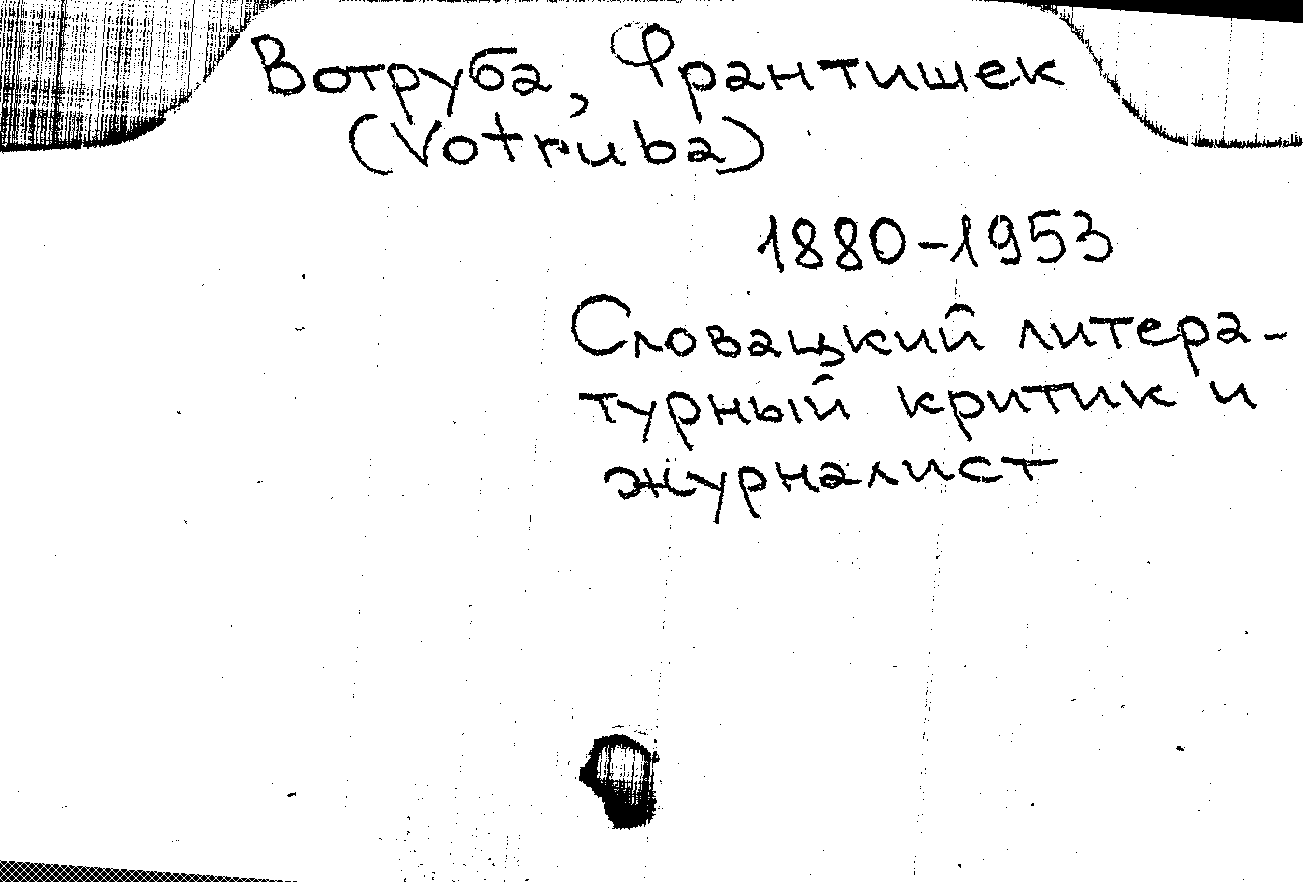 Вотруба, Франтишек
(Votruba)
1880-1953
Словацкий литера-
турный критик и
журналист